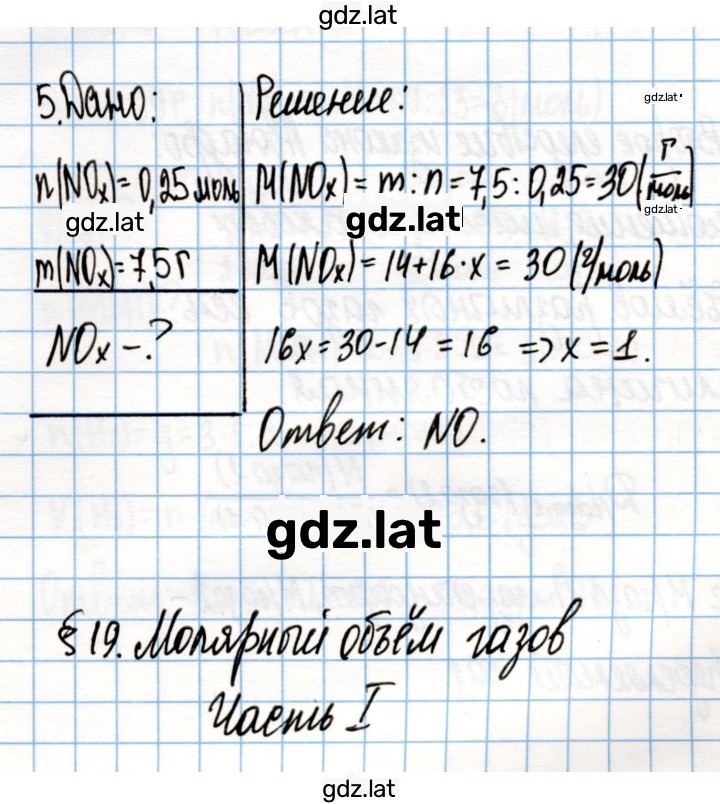 gdz.lat
5. Дано:
n(NOx) = 0,25 моль
gdz.lat
m(NOx) = 7,5 г
NOx - ?
Решение:
gdz.lat
M(NOx) = m : n = 7,5 : 0,25 = 30 (г/моль)
gdz.lat
gdz.lat
M(NOx) = 14+16·x = 30 (г/моль)
16x = 30-14 = 16 => x = 1.
Ответ: NO.
gdz.lat
§ 19. Молярный объём газов
Часть I
gdz.lat